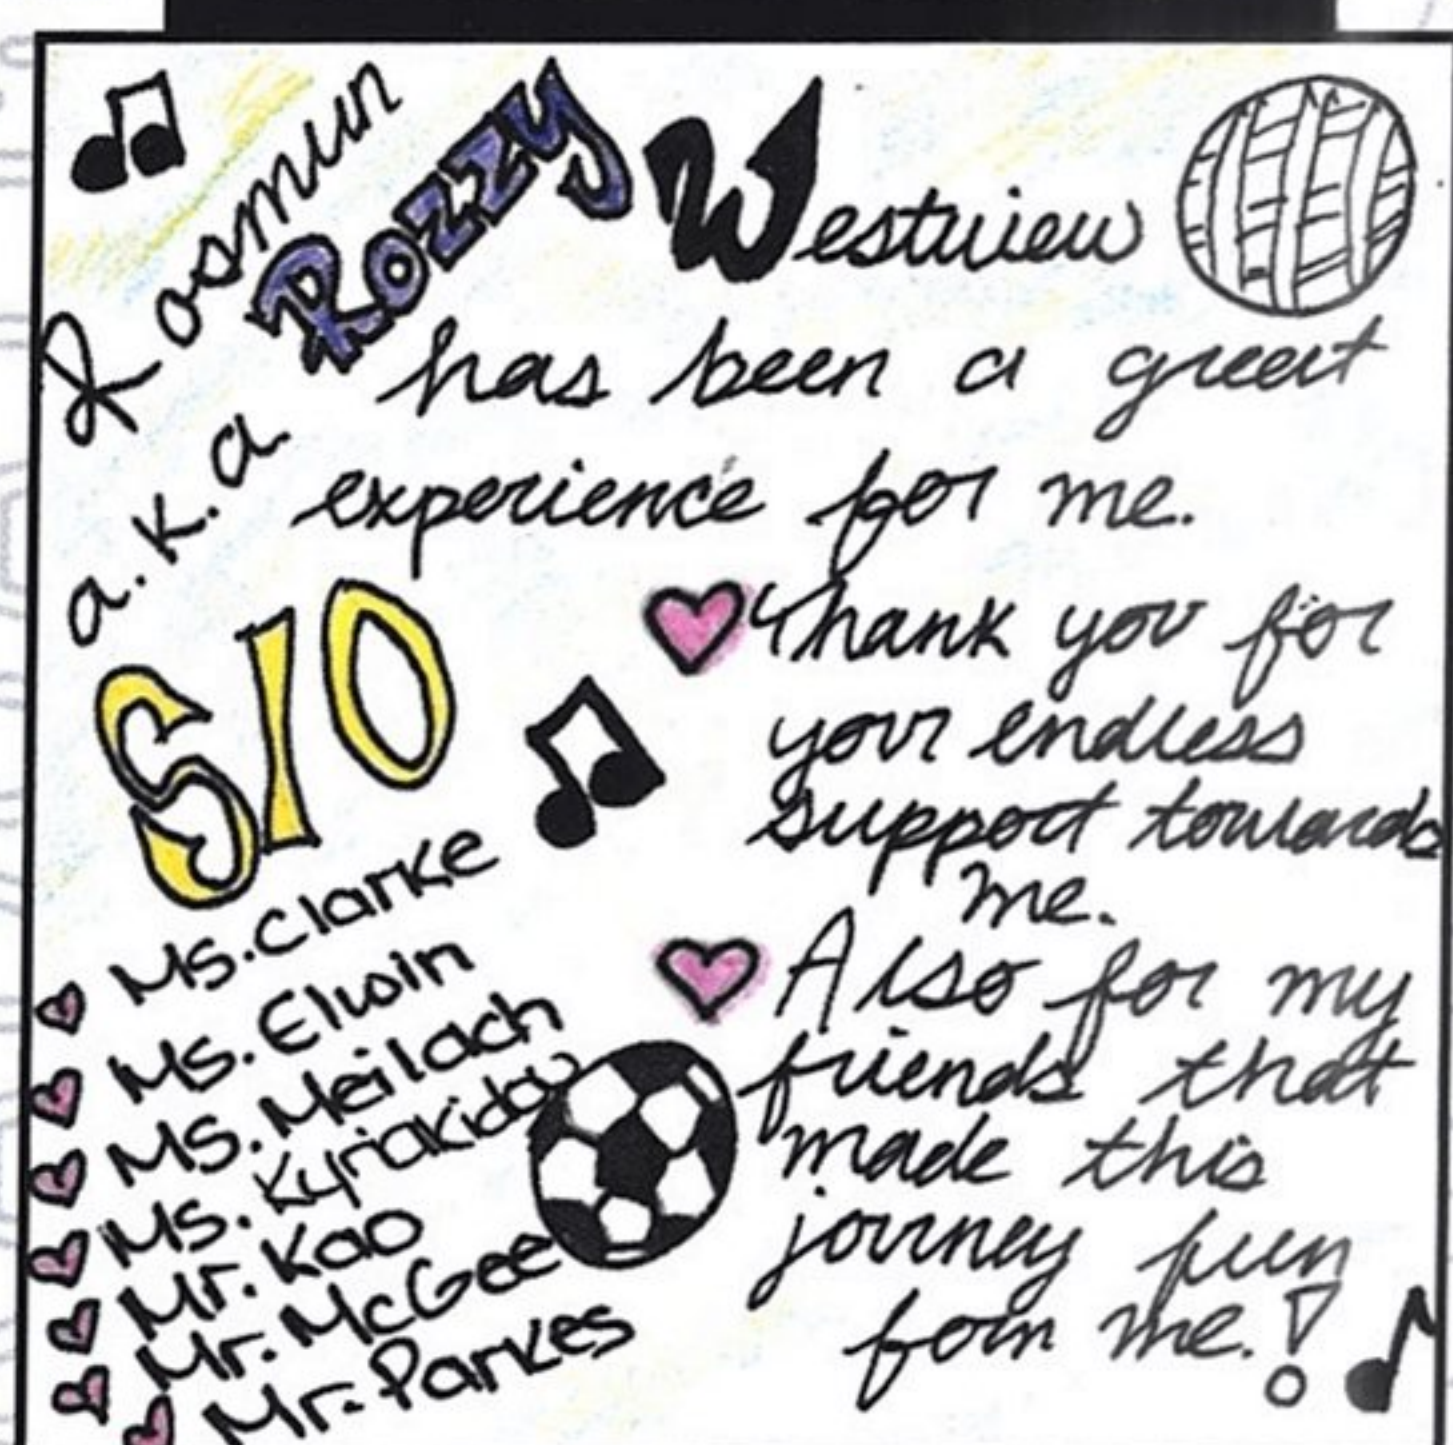 Rosmun
a.k.a Rozzy
Westview
has been a great
experience for me.
S10
Thank you for
your endless
support towards
me.
Also for my
friends that
made this
journey fun
for me.!
Ms. Clarke
Ms. Elwin
Ms. Meilach
Ms. Kyriakidou
Mr. Kao
Mr. McGee
Mr. Parkes